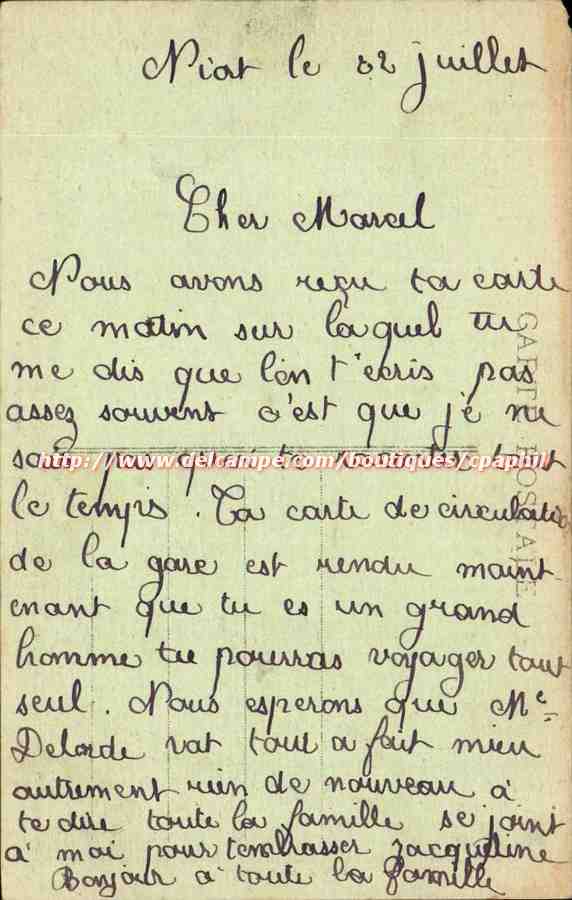 Niort le 22 juillet
Cher Marcel
Nous avons reçu ta carte
ce matin sur laquel tu
me dis que l'on t'ecris pas
assez souvent c'est que je ne
sais pas quoi te raconter tout
http://www.delcampe.com/boutiques/cpaphil
le temps. Ta carte de circulatio
de la gare est rendu maint
enant que tu es un grand
homme tu pourras voyager tout
seul. Nous esperons que Me
Delorde vat tout a fait mieu
autrement rien de nouveau a
te dire toute la famille se joint
à moi pour t'embrasser Jacqueline
Bonjour a toute la famille
CARTE POSTALE